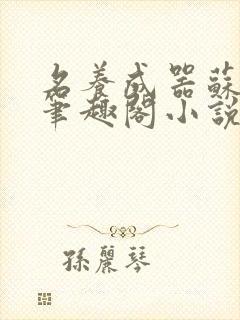 名養成器蘇
筆趣閣小說
孫麗琴